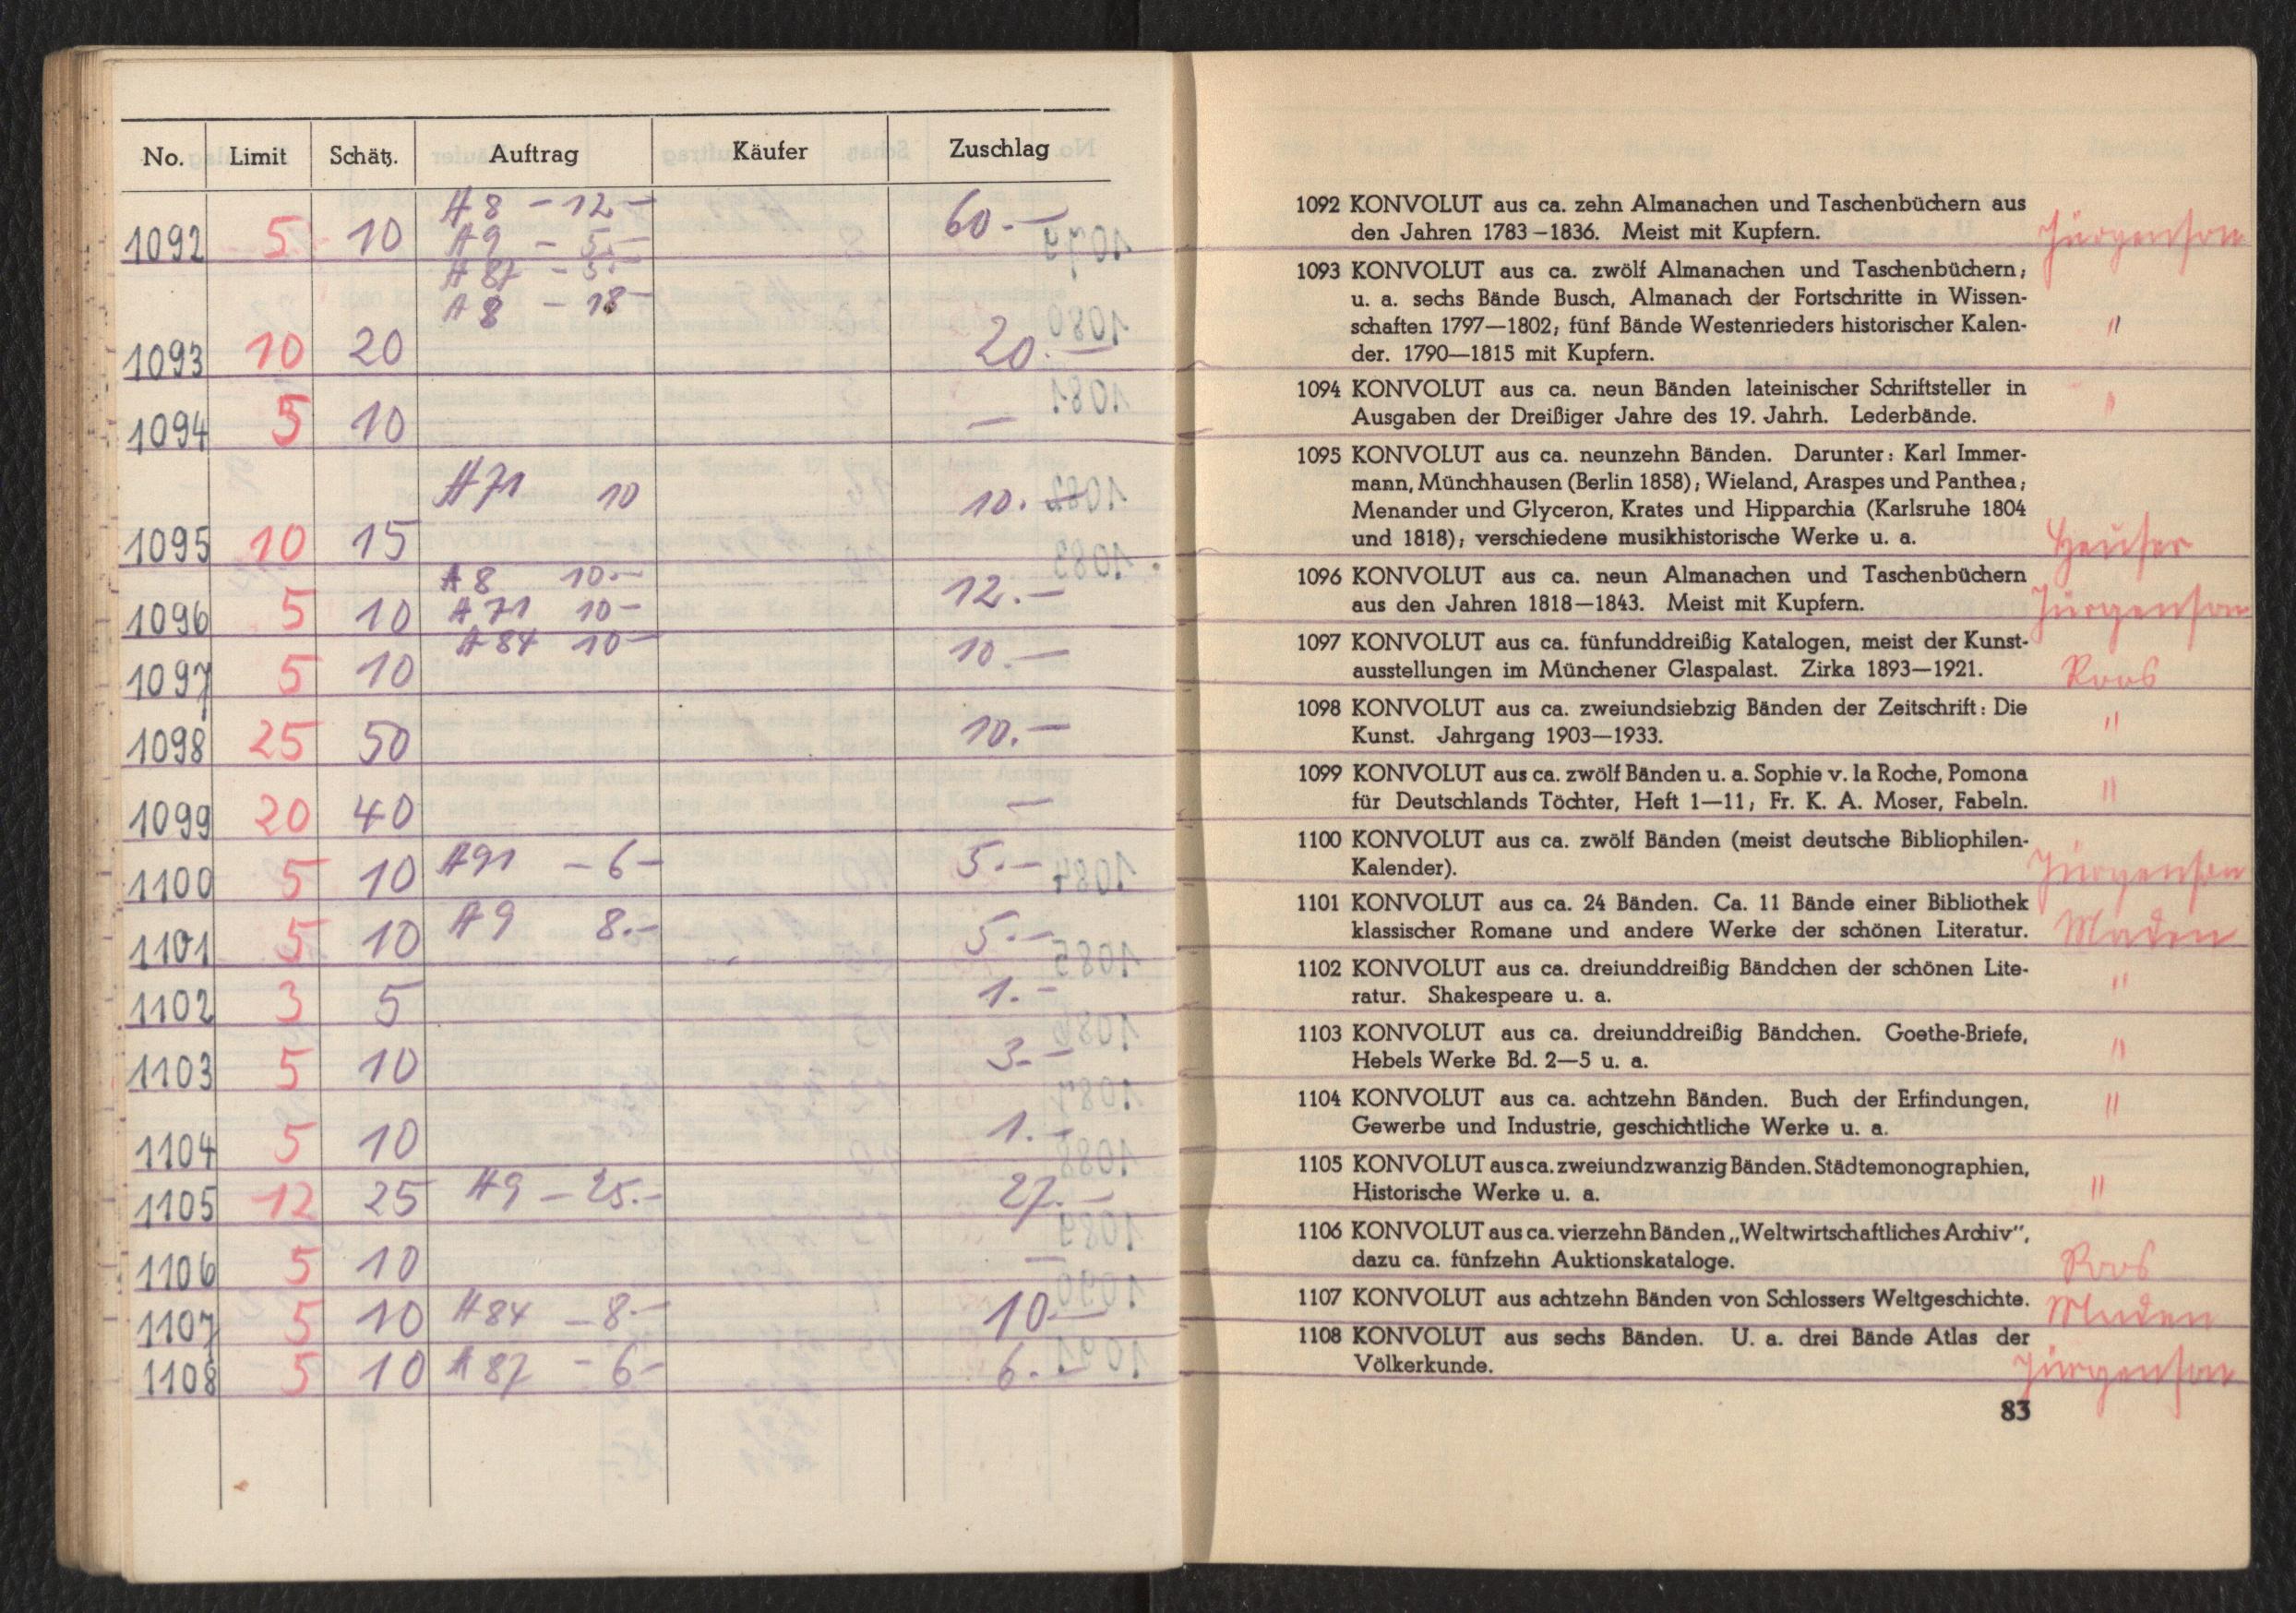 No. Limit Schätz. Auftrag Käufer Zuschlag
A8 – 12 –
1092 5 10 A9 – 5.– 60.–
A87 – 5.–
A8 – 18 –
1093 10 20 20.–
1094 5 10 –
A71 10 10.–
1095 10 15
A8 10.–
1096 5 10 A71 10 – 12.–
A84 10 –
1097 5 10 10.–
1098 25 50 10.–
1099 20 40 –
1100 5 10 A91 – 6 – 5.–
1101 5 10 A9 8.– 5.–
1102 3 5 1.–
1103 5 10 3.–
1104 5 10 1.–
1105 12 25 A9 – 25.– 27.–
1106 5 10 –
1107 5 10 A84 – 8.– 10 –
1108 5 10 A87 – 6 – 6.–
1092 KONVOLUT aus ca. zehn Almanachen und Taschenbüchern aus
den Jahren 1783–1836. Meist mit Kupfern. Jürgenson
1093 KONVOLUT aus ca. zwölf Almanachen und Taschenbüchern;
u. a. sechs Bände Busch, Almanach der Fortschritte in Wissen-
schaften 1797—1802; fünf Bände Westenrieders historischer Kalen- "
der. 1790—1815 mit Kupfern.
1094 KONVOLUT aus ca. neun Bänden lateinischer Schriftsteller in
Ausgaben der Dreißiger Jahre des 19. Jahrh. Lederbände. "
1095 KONVOLUT aus ca. neunzehn Bänden. Darunter: Karl Immer-
mann, Münchhausen (Berlin 1858); Wieland, Araspes und Panthea;
Menander und Glyceron, Krates und Hipparchia (Karlsruhe 1804
und 1818); verschiedene musikhistorische Werke u. a. Heuser
1096 KONVOLUT aus ca. neun Almanachen und Taschenbüchern
aus den Jahren 1818—1843. Meist mit Kupfern. Jürgenson
1097 KONVOLUT aus ca. fünfunddreißig Katalogen, meist der Kunst-
ausstellungen im Münchener Glaspalast. Zirka 1893—1921. Roos
1098 KONVOLUT aus ca. zweiundsiebzig Bänden der Zeitschrift: Die "
Kunst. Jahrgang 1903—1933.
1099 KONVOLUT aus ca. zwölf Bänden u. a. Sophie v. la Roche, Pomona
für Deutschlands Töchter, Heft 1—11; Fr. K. A. Moser, Fabeln. "
1100 KONVOLUT aus ca. zwölf Bänden (meist deutsche Bibliophilen-
Kalender). Jürgenson
1101 KONVOLUT aus ca. 24 Bänden. Ca. 11 Bände einer Bibliothek
klassischer Romane und andere Werke der schönen Literatur.
1102 KONVOLUT aus ca. dreiunddreißig Bändchen der schönen Lite- "
ratur. Shakespeare u. a.
1103 KONVOLUT aus ca. dreiunddreißig Bändchen. Goethe-Briefe,
Hebels Werke Bd. 2—5 u. a. "
1104 KONVOLUT aus ca. achtzehn Bänden. Buch der Erfindungen, "
Gewerbe und Industrie, geschichtliche Werke u. a.
1105 KONVOLUT aus ca. zweiundzwanzig Bänden. Städtemonographien,
Historische Werke u. a. "
1106 KONVOLUT aus ca. vierzehn Bänden „Weltwirtschaftliches Archiv",
dazu ca. fünfzehn Auktionskataloge. Roos
1107 KONVOLUT aus achtzehn Bänden von Schlossers Weltgeschichte.
1108 KONVOLUT aus sechs Bänden. U. a. drei Bände Atlas der
Völkerkunde. Jürgenson
83